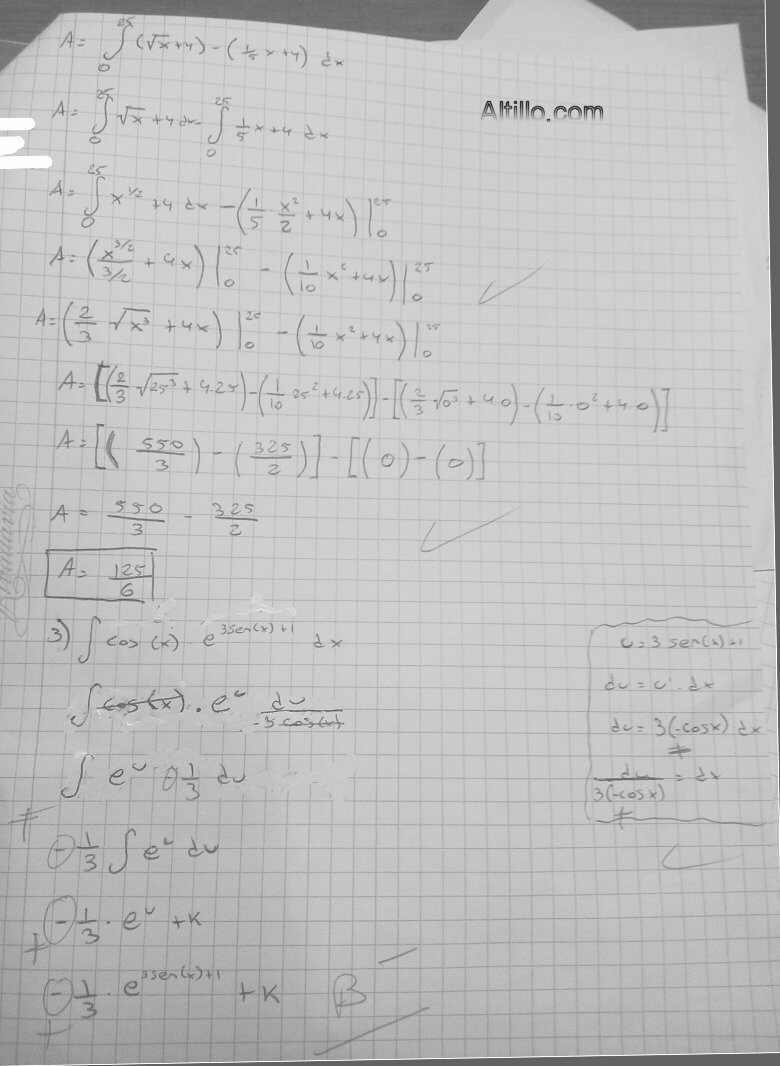 A = ∫₀²⁵ (√x+4) - (1/5 x+4) dx
Altillo.com
A = ∫₀²⁵ √x + 4 dx - ∫₀²⁵ 1/5 x+4 dx
A = ∫₀²⁵ x^1/2 + 4 dx - (1/5 x²/2 + 4x) |₀²⁵
A = (x^3/2 / 3/2 + 4x) |₀²⁵ - (1/10 x² + 4x) |₀²⁵
A = (2/3 √x³ + 4x) |₀²⁵ - (1/10 x² + 4x) |₀²⁵
A = [(2/3 √25³ + 4.25) - (1/10 25² + 4.25)] - [(2/3 √0³ + 4.0) - (1/10 . 0² + 4.0)]
A = [(550/3) - (325/2)] - [(0) - (0)]
A = 550/3 - 325/2
A = 125/6
3) ∫ cos (x) e^3sen(x)+1 dx
u = 3 sen(x)+1
du = u' . dx
du = 3(-cosx) dx
du / 3(-cosx) = dx
∫ cos(x) . e^u du / -3 cos(x)
∫ e^u - 1/3 du
- 1/3 ∫ e^u du
- 1/3 . e^u + K
- 1/3 . e^3sen(x)+1 + K
B